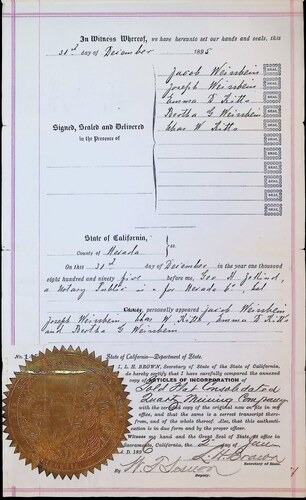 In Witness Whereof, we have hereunto set our hands and seals, this
31st day of December 1895
Jacob Weissbein SEAL
Joseph Weissbein SEAL
Emma D Kitts SEAL
Bertha G Weissbein SEAL
Chas W Kitts SEAL
SEAL
SEAL
SEAL
SEAL
SEAL
SEAL
Signed, Sealed and Delivered
in the Presence of
State of California,
County of Nevada ss.
On this 31st day of December in the year one thousand
eight hundred and ninety five before me, Geo H.
a Notary Public in & for Nevada Co, Cal
personally appeared Jacob Weissbein
Joseph Weissbein Chas W Kitts, Emma D Kitts
and Bertha G Weissbein
No. 1
State of California—Department of State.
I, L. H. BROWN, Secretary of State of the State of California,
do hereby certify that I have carefully compared the annexed
copy of ARTICLES OF INCORPORATION of
Gold Flat Consolidated
Quartz Mining Company
with the copy of the original now on file in my
office, and that the same is a correct transcript there-
from, and of the whole thereof. Also, that this authenti-
cation is in due form and by the proper officer.
Witness my hand and the Great Seal of State, at office in
Sacramento, California, the 2d day of Jan
A. D. 1896
L. H. Brown
Secretary of State.
By